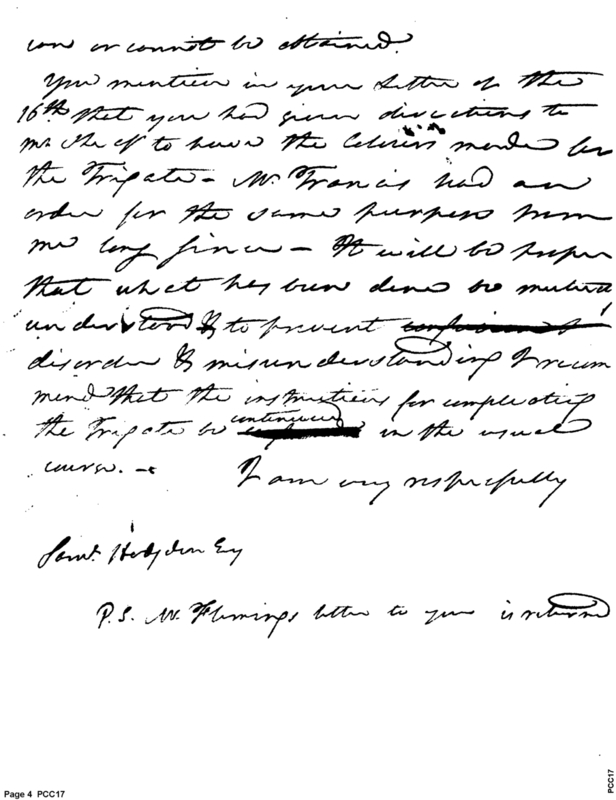 can or cannot be obtained.
You mention in your Letter of the
16th that you had given directions to
to have the Colours made for
the Frigate - Mr. Francis had an
order for the same purpose from
me long since - It will be proper
that what has been done be mutually
understood & to prevent
disorder & misunderstanding I recom
mend that the instructions for compleating
the Frigate be continued in the usual
course. -
I am very respectfully
Saml. Hodgdon Esq
P.S. Mr. Flemings letter to you is returned
Page 4 PCC17
PCC17